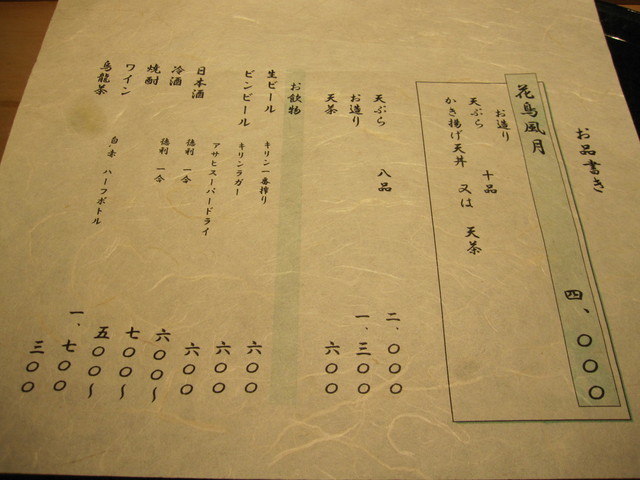 お品書き
花鳥風月 四、〇〇〇
お造り
天ぷら 十品
かき揚げ天丼 又は 天茶
天ぷら 八品 二、〇〇〇
お造り 一、三〇〇
天茶 六〇〇
お飲物
生ビール キリン一番搾り 六〇〇
ビンビール キリンラガー 六〇〇
アサヒスーパードライ 六〇〇
日本酒 徳利 一合 六〇〇〜
冷酒 徳利 一合 七〇〇〜
焼酎 五〇〇〜
ワイン 白.赤 ハーフボトル 一、七〇〇
烏龍茶 三〇〇